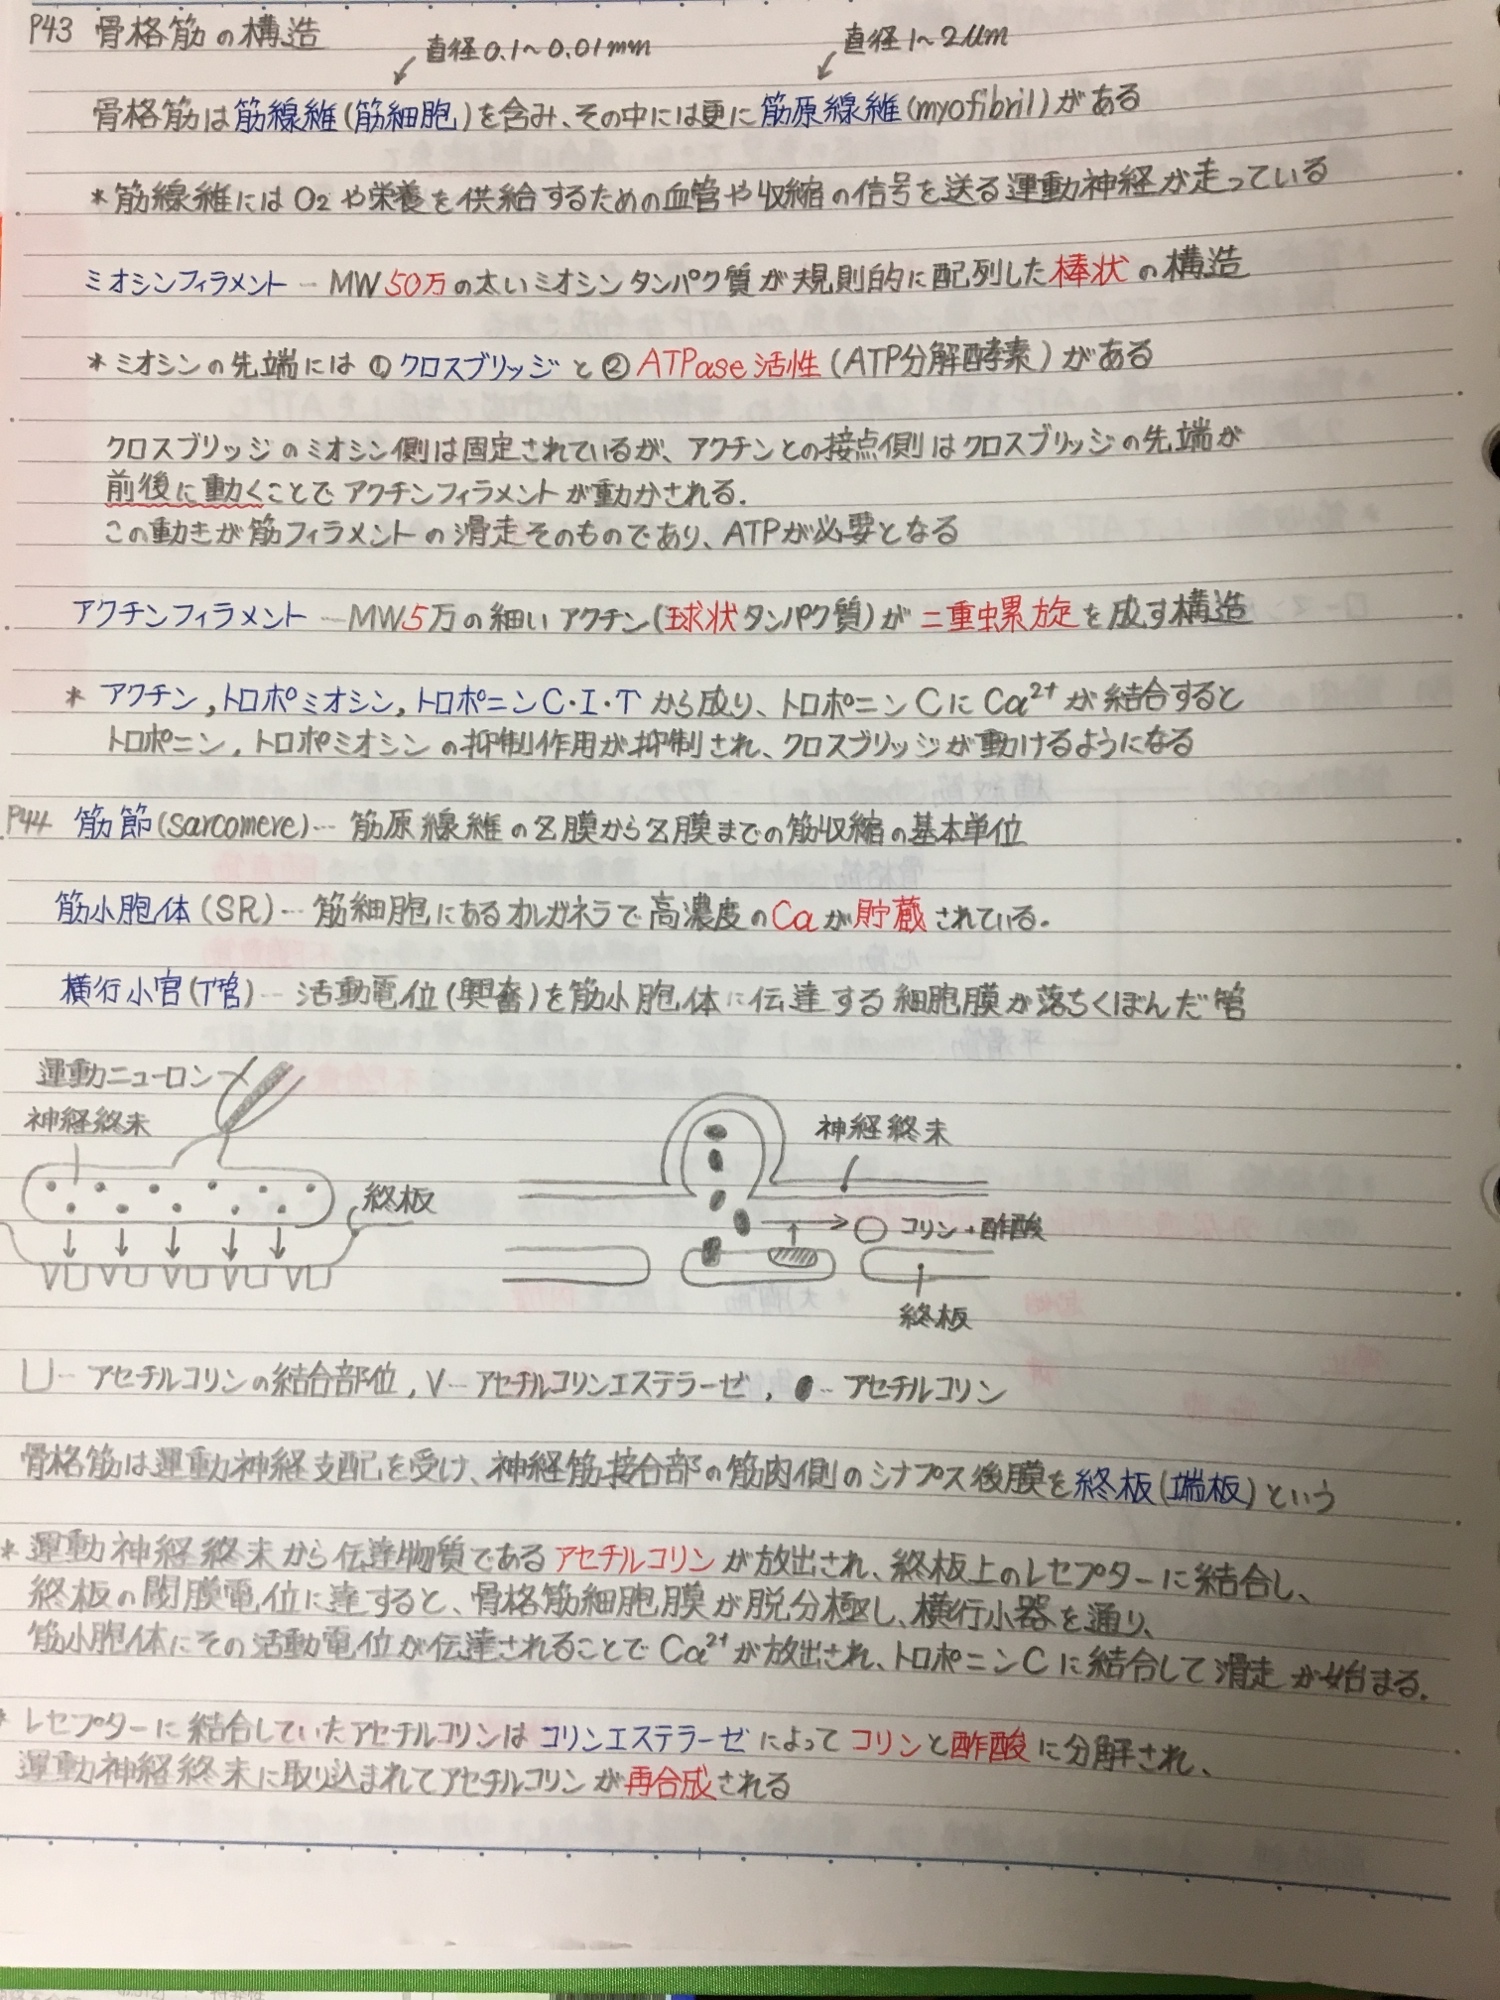 P43 骨格筋の構造
直径0.1〜0.01mm
直径1〜2μm
骨格筋は筋線維(筋細胞)を含み、その中には更に筋原線維(myofibril)がある
*筋線維にはO2や栄養を供給するための血管や収縮の信号を送る運動神経が走っている
ミオシンフィラメント … MW50万の太いミオシンタンパク質が規則的に配列した棒状の構造
*ミオシンの先端には①クロスブリッジと②ATPase活性(ATP分解酵素)がある
クロスブリッジのミオシン側は固定されているが、アクチンとの接点側はクロスブリッジの先端が
前後に動くことでアクチンフィラメントが動かされる.
この動きが筋フィラメントの滑走そのものであり、ATPが必要となる
アクチンフィラメント … MW5万の細いアクチン(球状タンパク質)が二重螺旋を成す構造
* アクチン,トロポミオシン,トロポニンC・I・Tから成り、トロポニンCにCa2+が結合すると
トロポニン,トロポミオシンの抑制作用が抑制され、クロスブリッジが動けるようになる
P44 筋節(sarcomere)… 筋原線維のZ膜からZ膜までの筋収縮の基本単位
筋小胞体(SR)… 筋細胞にあるオルガネラで高濃度のCaが貯蔵されている.
横行小官(T管)… 活動電位(興奮)を筋小胞体に伝達する細胞膜が落ちくぼんだ管
運動ニューロン
神経終末
終板
神経終末
コリン+酢酸
終板
凵… アセチルコリンの結合部位, V… アセチルコリンエステラーゼ, ●… アセチルコリン
骨格筋は運動神経支配を受け、神経筋接合部の筋肉側のシナプス後膜を終板(端板)という
*運動神経終末から伝達物質であるアセチルコリンが放出され、終板上のレセプターに結合し、
終板の閾膜電位に達すると、骨格筋細胞膜が脱分極し、横行小器を通り、
筋小胞体にその活動電位が伝達されることでCa2+が放出され、トロポニンCに結合して滑走が始まる.
*レセプターに結合していたアセチルコリンはコリンエステラーゼによってコリンと酢酸に分解され、
運動神経終末に取り込まれてアセチルコリンが再合成される